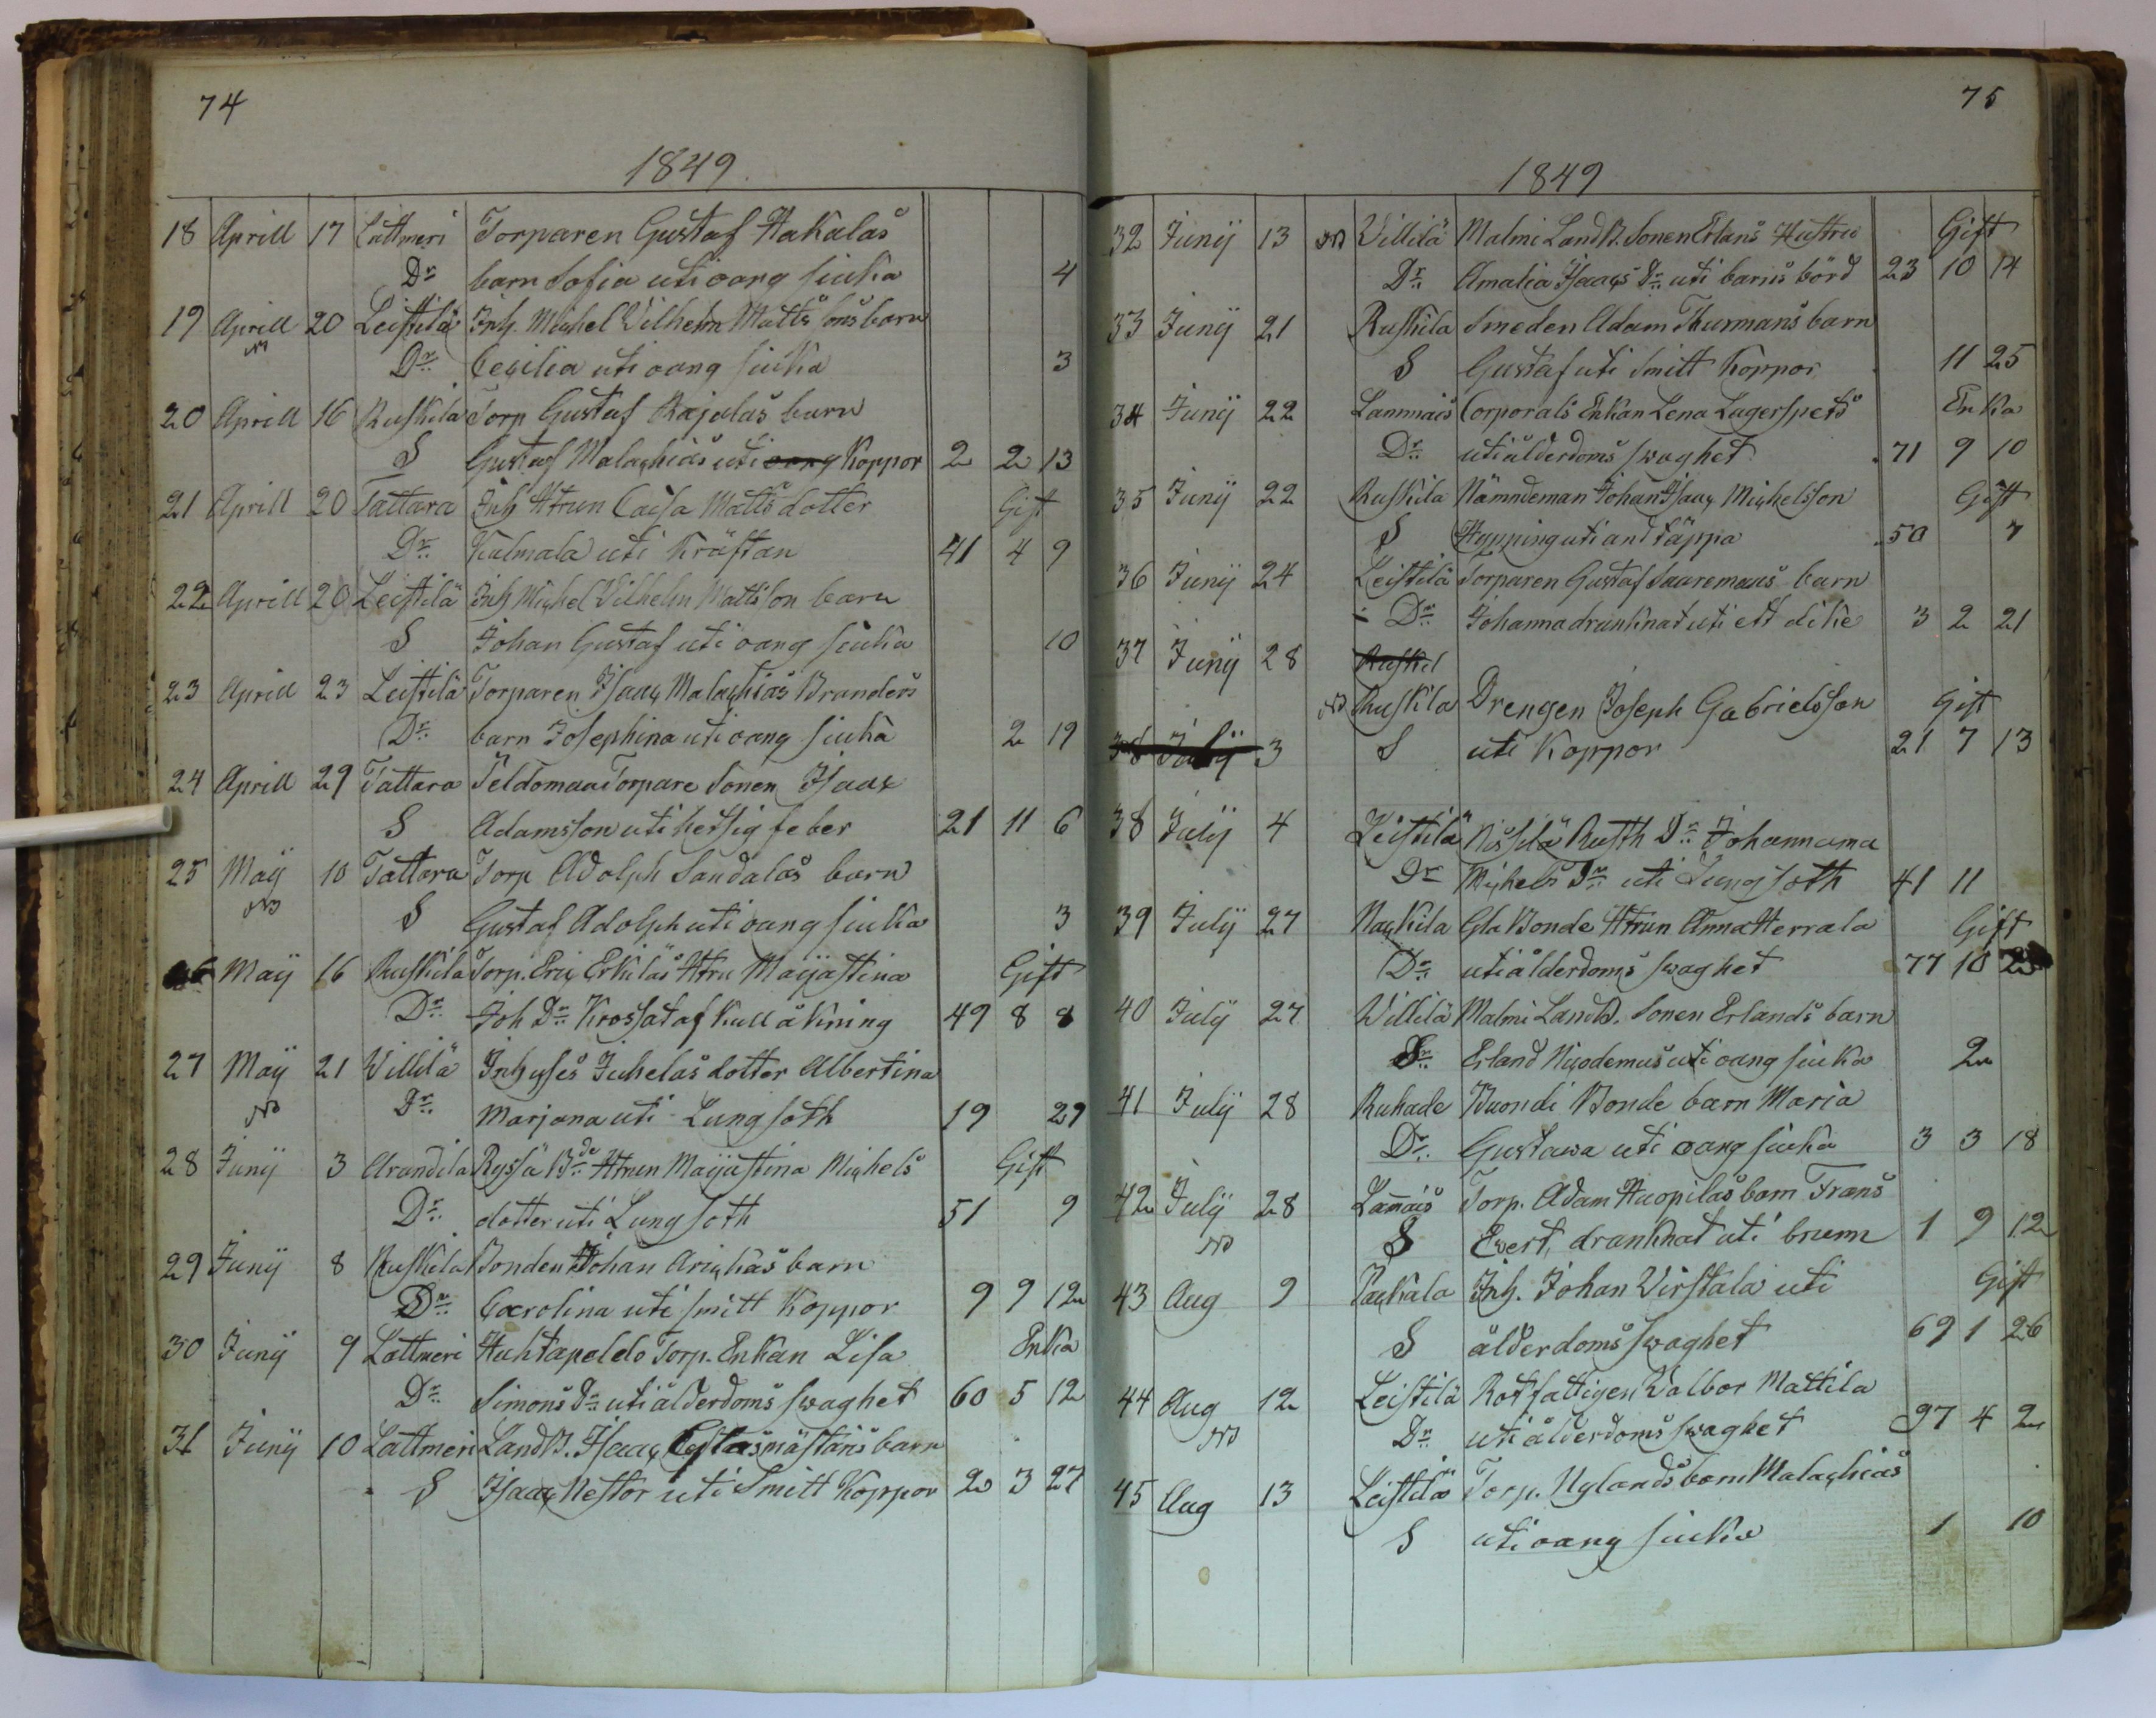 74
1849.
18 Aprill 17 Lattmeri Torparen Gustaf Hakalas
Dr barn Sofia uti oang siuka 4
19 Aprill 20 Leistilä Inh. Michel Vilhelm Mattssons barn
NB Dr Cecilia uti oang siuka 3
20 Aprill 16 Ruskila Torp Gustaf Rajalas barn
S Gustaf Malachias uti oang Koppor 2 2 13
21 Aprill 20 Tattara Inh Htrun Caisa Matts dotter Gift
Dr Kulmala uti Kräftan 41 4 9
22 Aprill 20 Leistilä Inh Michel Vilhelm Mattsson barn
S Johan Gustaf uti oang siuka 10
23 Aprill 23 Leistilä Torparen Isaac Malachias Branders
Dr barn Josephina uti oang siuka 2 19
24 Aprill 29 Tattara Peldomaa Torpare Sonen Isaax
S Adamsson uti hetsig feber 21 11 6
25 Maij 10 Tattara Torp Adolph Sandalas barn
NB S Gustaf Adolph uti oang siuka 3
26 Maij 16 Ruskila Torp. Eric Erkiläs Htru Maijastina Gift
Dr Joh Dr Krossat af kullåkning 49 8 8
27 Maij 21 Villilä Inhyses Juhelas dotter Albertina
NB Dr Marjana uti Lungsoth 19 29
28 Junij 3 Arandila Ryssä Bde Htrun Maijastina Michels Gift
Dr dotter uti Lungsoth 51 9
29 Junij 8 Ruskila Bonden Johan Arickas barn
Dr Carolina uti smitt Koppor 9 9 12
30 Junij 9 Lattmeri Huhtapeldo Torp. Enkan Lisa Enka
Dr Simons Dr uti ålderdoms swaghet 60 5 12
31 Junij 10 Lattmeri LandB. Isaac barn
S Isaac Nestor uti Smitt Koppor 2 3 27
75
1849
32 Junij 13 NB Villilä Malmi LandB. Sonen Erlans Hustru Gift
Dr Amalia Isaacs Dr uti barns börd 23 10 14
33 Junij 21 Ruskila Smeden Adam Thurmans barn
S Gustaf uti Smitt Koppor 11 25
34 Junij 22 Lammais Corporals Enkan Lena Lagerspets Enka
Dr uti ålderdoms swaghet 71 9 10
35 Junij 22 Ruskila Nämndeman Johan Isaac Michelsson Gift
S Hypping uti andtäppa 50 7
36 Junij 24 Leistilä Torparen Gustaf Saaremaas barn
Dr Johanna drunknat uti ett dike 3 2 21
37 Junij 28 Ruskil
NB Ruskila Drengen Joseph Gabrielsson Gift
38 Julij 3 S uti Koppor 21 7 13
38 Julij 4 Leistilä Nissilä Rusth Dr Johannama
Dr Michels Dr uti Lungsoth 41 11
39 Julij 27 Nackila Gla Bonde Htrun Anna Herrala Gift
Dr uti ålderdoms swaghet 77 10
40 Julij 27 Villilä Malmi LandB. Sonen Erlands barn
Sr Erland Nicodemus uti oang siuka 2
41 Julij 28 Ruhade Buondi Bonde barn Maria
Dr Gustawa uti oang siuka 3 3 18
42 Julij 28 Lam̄ais Torp. Adam Huopilas barn Frans
NB S Evert, drunknat uti brunn 1 9 12
43 Aug 9 Packala Inh. Johan Virstala uti Gift
S ålderdoms swaghet 69 1 26
44 Aug 12 Leistilä Rotfattigen Valbor Mattila
NB Dr uti ålderdoms swaghet 97 4 2
45 Aug 13 Leistilä Torp. Nylands barn Malachias
S uti oang siuka 1 10